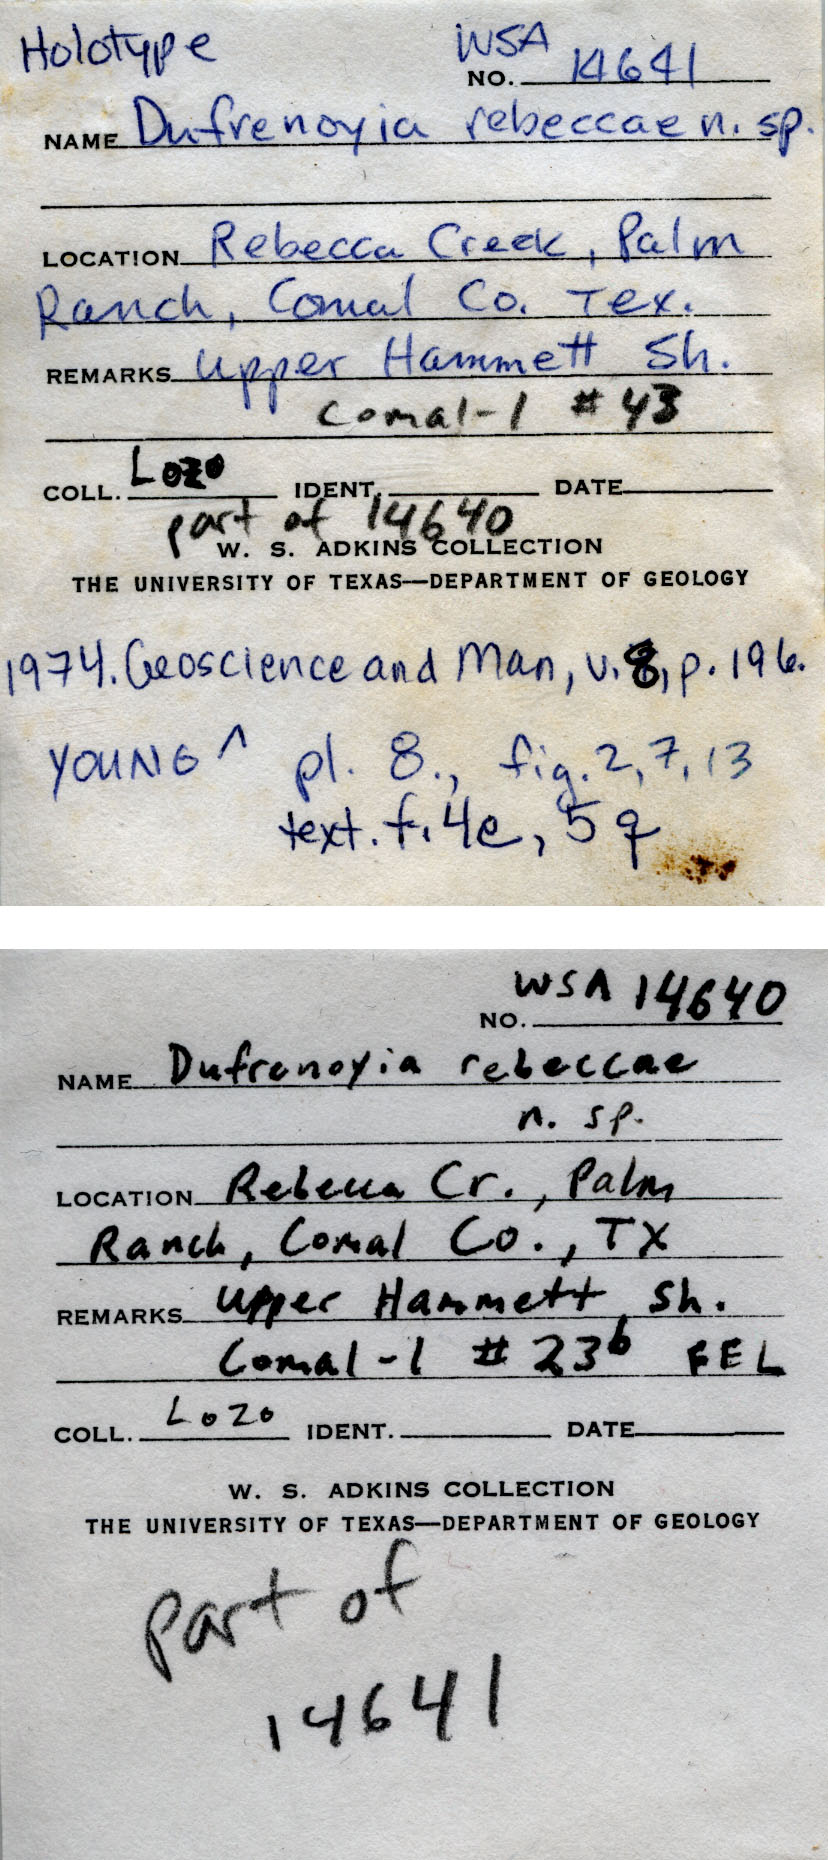 Holotype
WSA
NO. 14641
NAME Dufrenoyia rebeccae n. sp.
LOCATION Rebecca Creek, Palm
Ranch, Comal Co. Tex.
REMARKS Upper Hammett Sh.
Comal-1 # 43
COLL. Lozo IDENT. DATE
part of 14640
W. S. ADKINS COLLECTION
THE UNIVERSITY OF TEXAS—DEPARTMENT OF GEOLOGY
1974. Geoscience and Man, v. 8, p. 196.
YOUNG ^ pl. 8., fig. 2, 7, 13
text. f. 4e, 5q
WSA 14640
NO.
NAME Dufrenoyia rebeccae
n. sp.
LOCATION Rebecca Cr., Palm
Ranch, Comal Co., TX
REMARKS Upper Hammett Sh.
Comal-1 # 23b FEL
COLL. Lozo IDENT. DATE
W. S. ADKINS COLLECTION
THE UNIVERSITY OF TEXAS—DEPARTMENT OF GEOLOGY
part of
14641